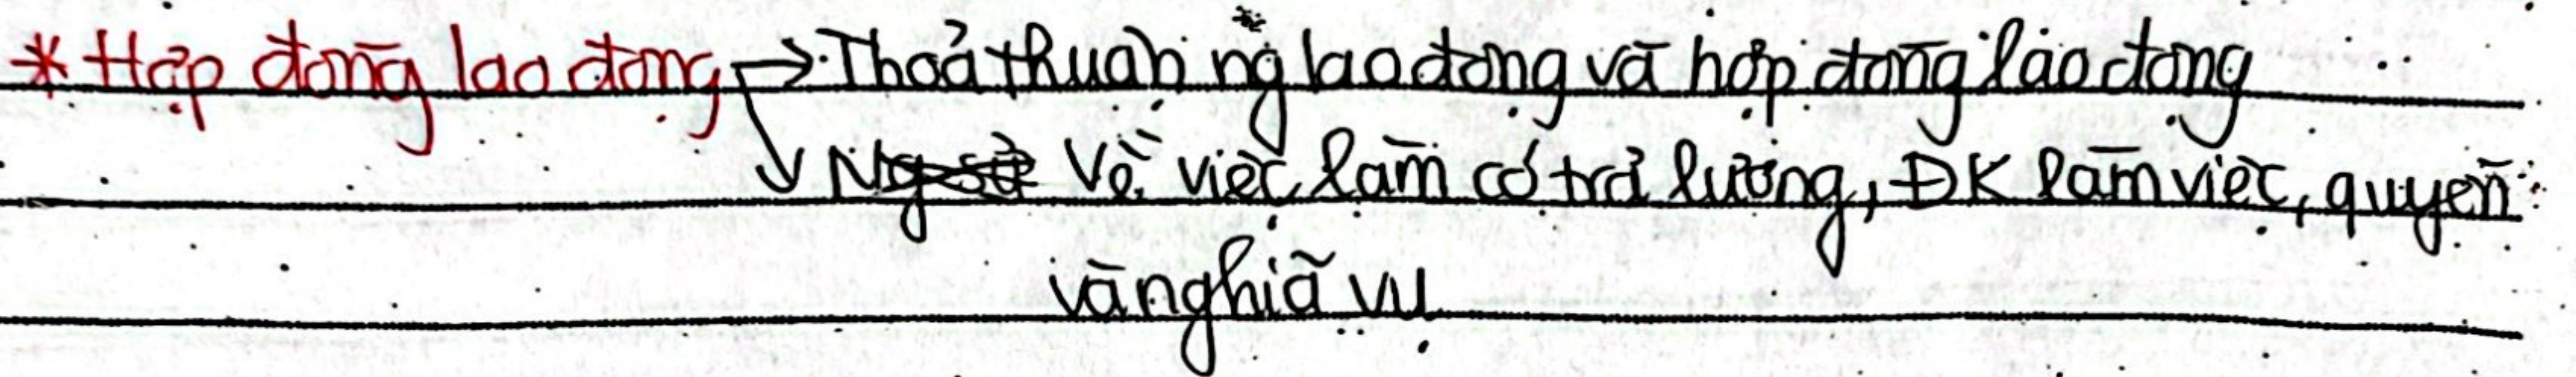 * Hợp đồng lao động → Thoả thuận ng lao động và hợp đồng lao động
↓ Về việc làm có trả lương, ĐK làm việc, quyền
và nghĩa vụ